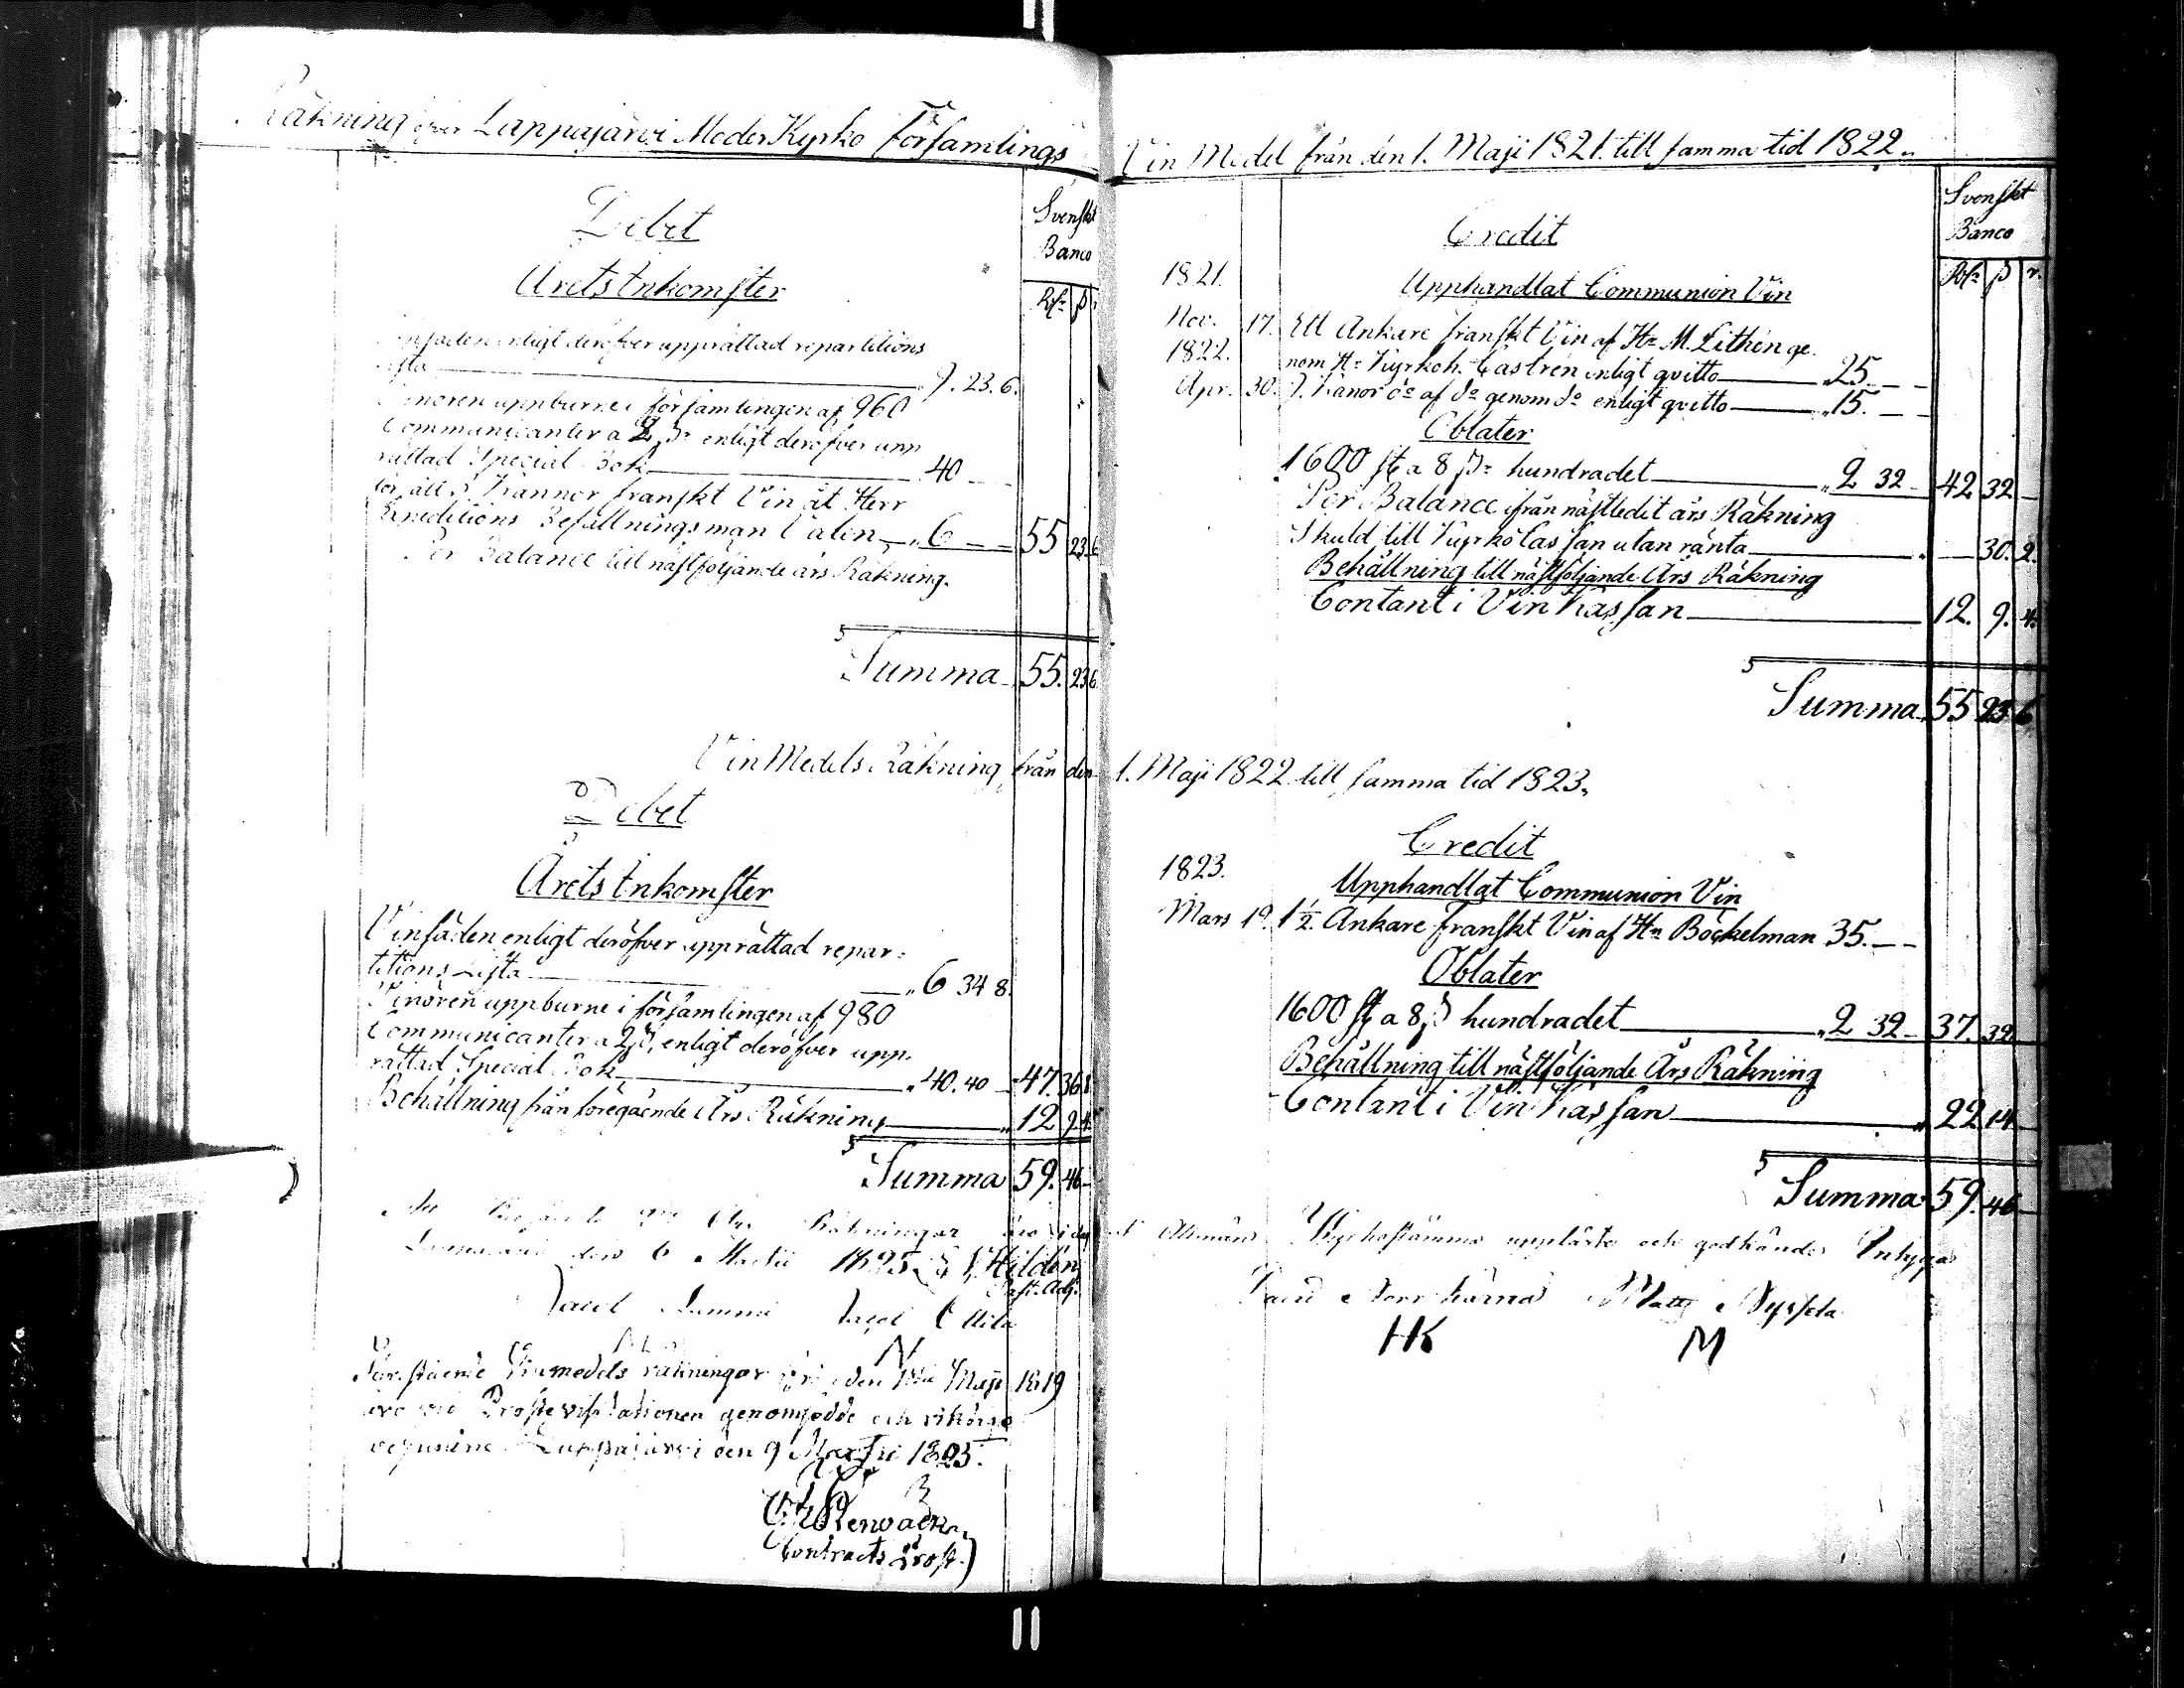 Räkning öfver Lappajärvi Moder Kyrko Församlings
Debet
Svenskt
Banco
Årets Inkomster
Rd: ß r
enligt deröfver upprättad repartitions
lista 9. 23. 6.
uppburne i församlingen af 960
Communicanter a 2 ß: enligt deröfver upp
rättad Special Bok 40
Kannor franskt Vin åt Herr
Expeditions Befallningsman Calen 6 55 23 6
Per Balance till nästföljande års Räkning.
Summa 55. 23 6
Vin Medels Räkning från den
Debet
Årets Inkomster
Vinsäden enligt deröfver upprättad repar-
titions Lista 6 34 8.
Vinören uppburne i församlingen af 980
Communicanter a 2 ß, enligt deröfver upp-
rättad Special Bok 40. 40 47. 36 8
Behållning från föregående Års Räkning 12 9. 4
Summa 59. 46
Räkningar äro i dag
den 6 Martii 1825 Hildén
Past. Adj.
Jacob Lummi Jacob
N
Vinmedels räkningar den 1sta Maji 1819
äro vid Prostevisitationen genomsedde och riktige
Lappajärvi den 9 Martii 1825.
Contracts Prost.
Vin Medel från den 1. Maji 1821. till samma tid 1822.
Svenskt
Banco
Credit
Rd: ß r.
1821. Upphandlat Communion Vin
Nov. 17. Ett Ankare franskt Vin af Hr M. Lithén ge-
1822. nom Hr Kyrkoh. Castrén enligt qvitto 25.
Apr. 30. 9. Kanor do af do genom do enligt qvitto 15.
Oblater
1600 st a 8 ß: hundradet 2 32 42 32
Per Balance ifrån nästledit års Räkning
Skuld till Kyrko Cassan utan ränta 30. 2.
Behållning till nästföljande Års Räkning
Contant i Vin Kassan 12. 9. 4.
Summa 55 23 6
1. Maji 1822 till samma tid 1823.
Credit
1823. Upphandlat Communion Vin
Mars 19. 1 1/2. Ankare franskt Vin af Hr Böckelman 35.
Oblater
1600 st a 8 ß hundradet 2 32 37. 32
Behållning till nästföljande Års Räkning
Contant i Vin Kassan 22 14
Summa 59. 46
Allmän Kyrkostämma uppläste och godkände Intygar
Matts
HK M